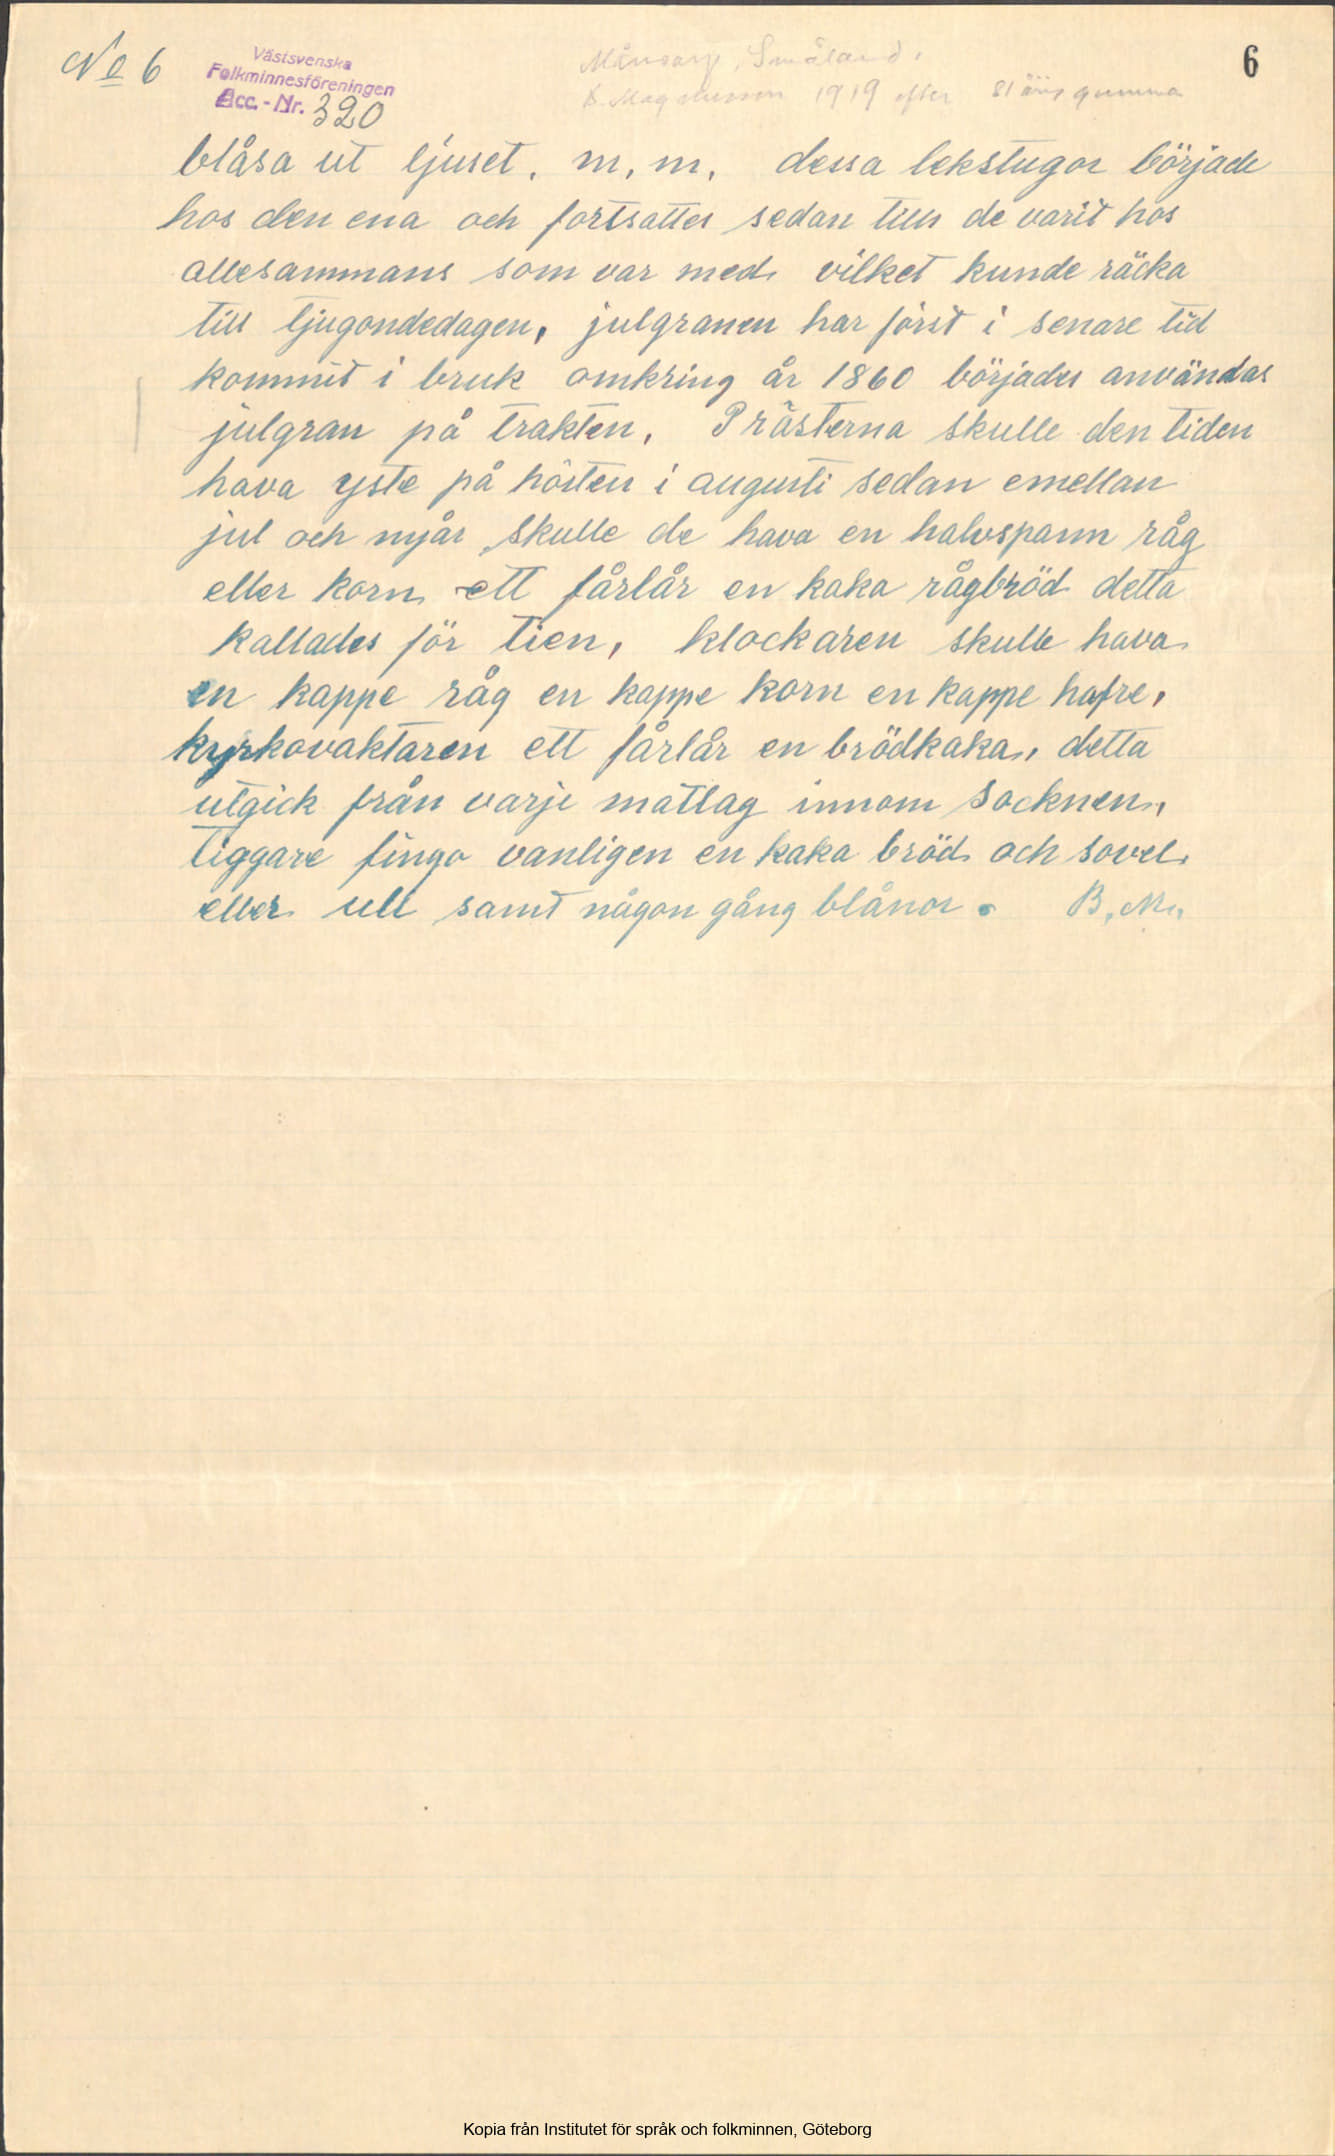 No 6
Västsvenska
Folkminnesföreningen
Acc.-Nr. 320
Månsarp, Småland.
B. Magnusson 1919 efter 81 årig gumma
6
blåsa ut ljuset, m, m, dessa lekstugor började
hos den ena och fortsattes sedan tills de varit hos
allesammans som var med, vilket kunde räcka
till tjugondedagen, julgranen har först i senare tid
kommit i bruk omkring år 1860 börjades användas
julgran på trakten, Prästerna skulle den tiden
hava yste på hösten i augusti sedan emellan
jul och nyår skulle de hava en halvspann råg
eller korn, ett fårlår en kaka rågbröd detta
kallades för tien, klockaren skulle hava
en kappe råg en kappe korn en kappe hafre,
kyrkovaktaren ett fårlår en brödkaka, detta
utgick från varje matlag innom socknen,
tiggare fingo vanligen en kaka bröd och sovel
eller ull samt någon gång blånor. B. M.
Kopia från Institutet för språk och folkminnen, Göteborg